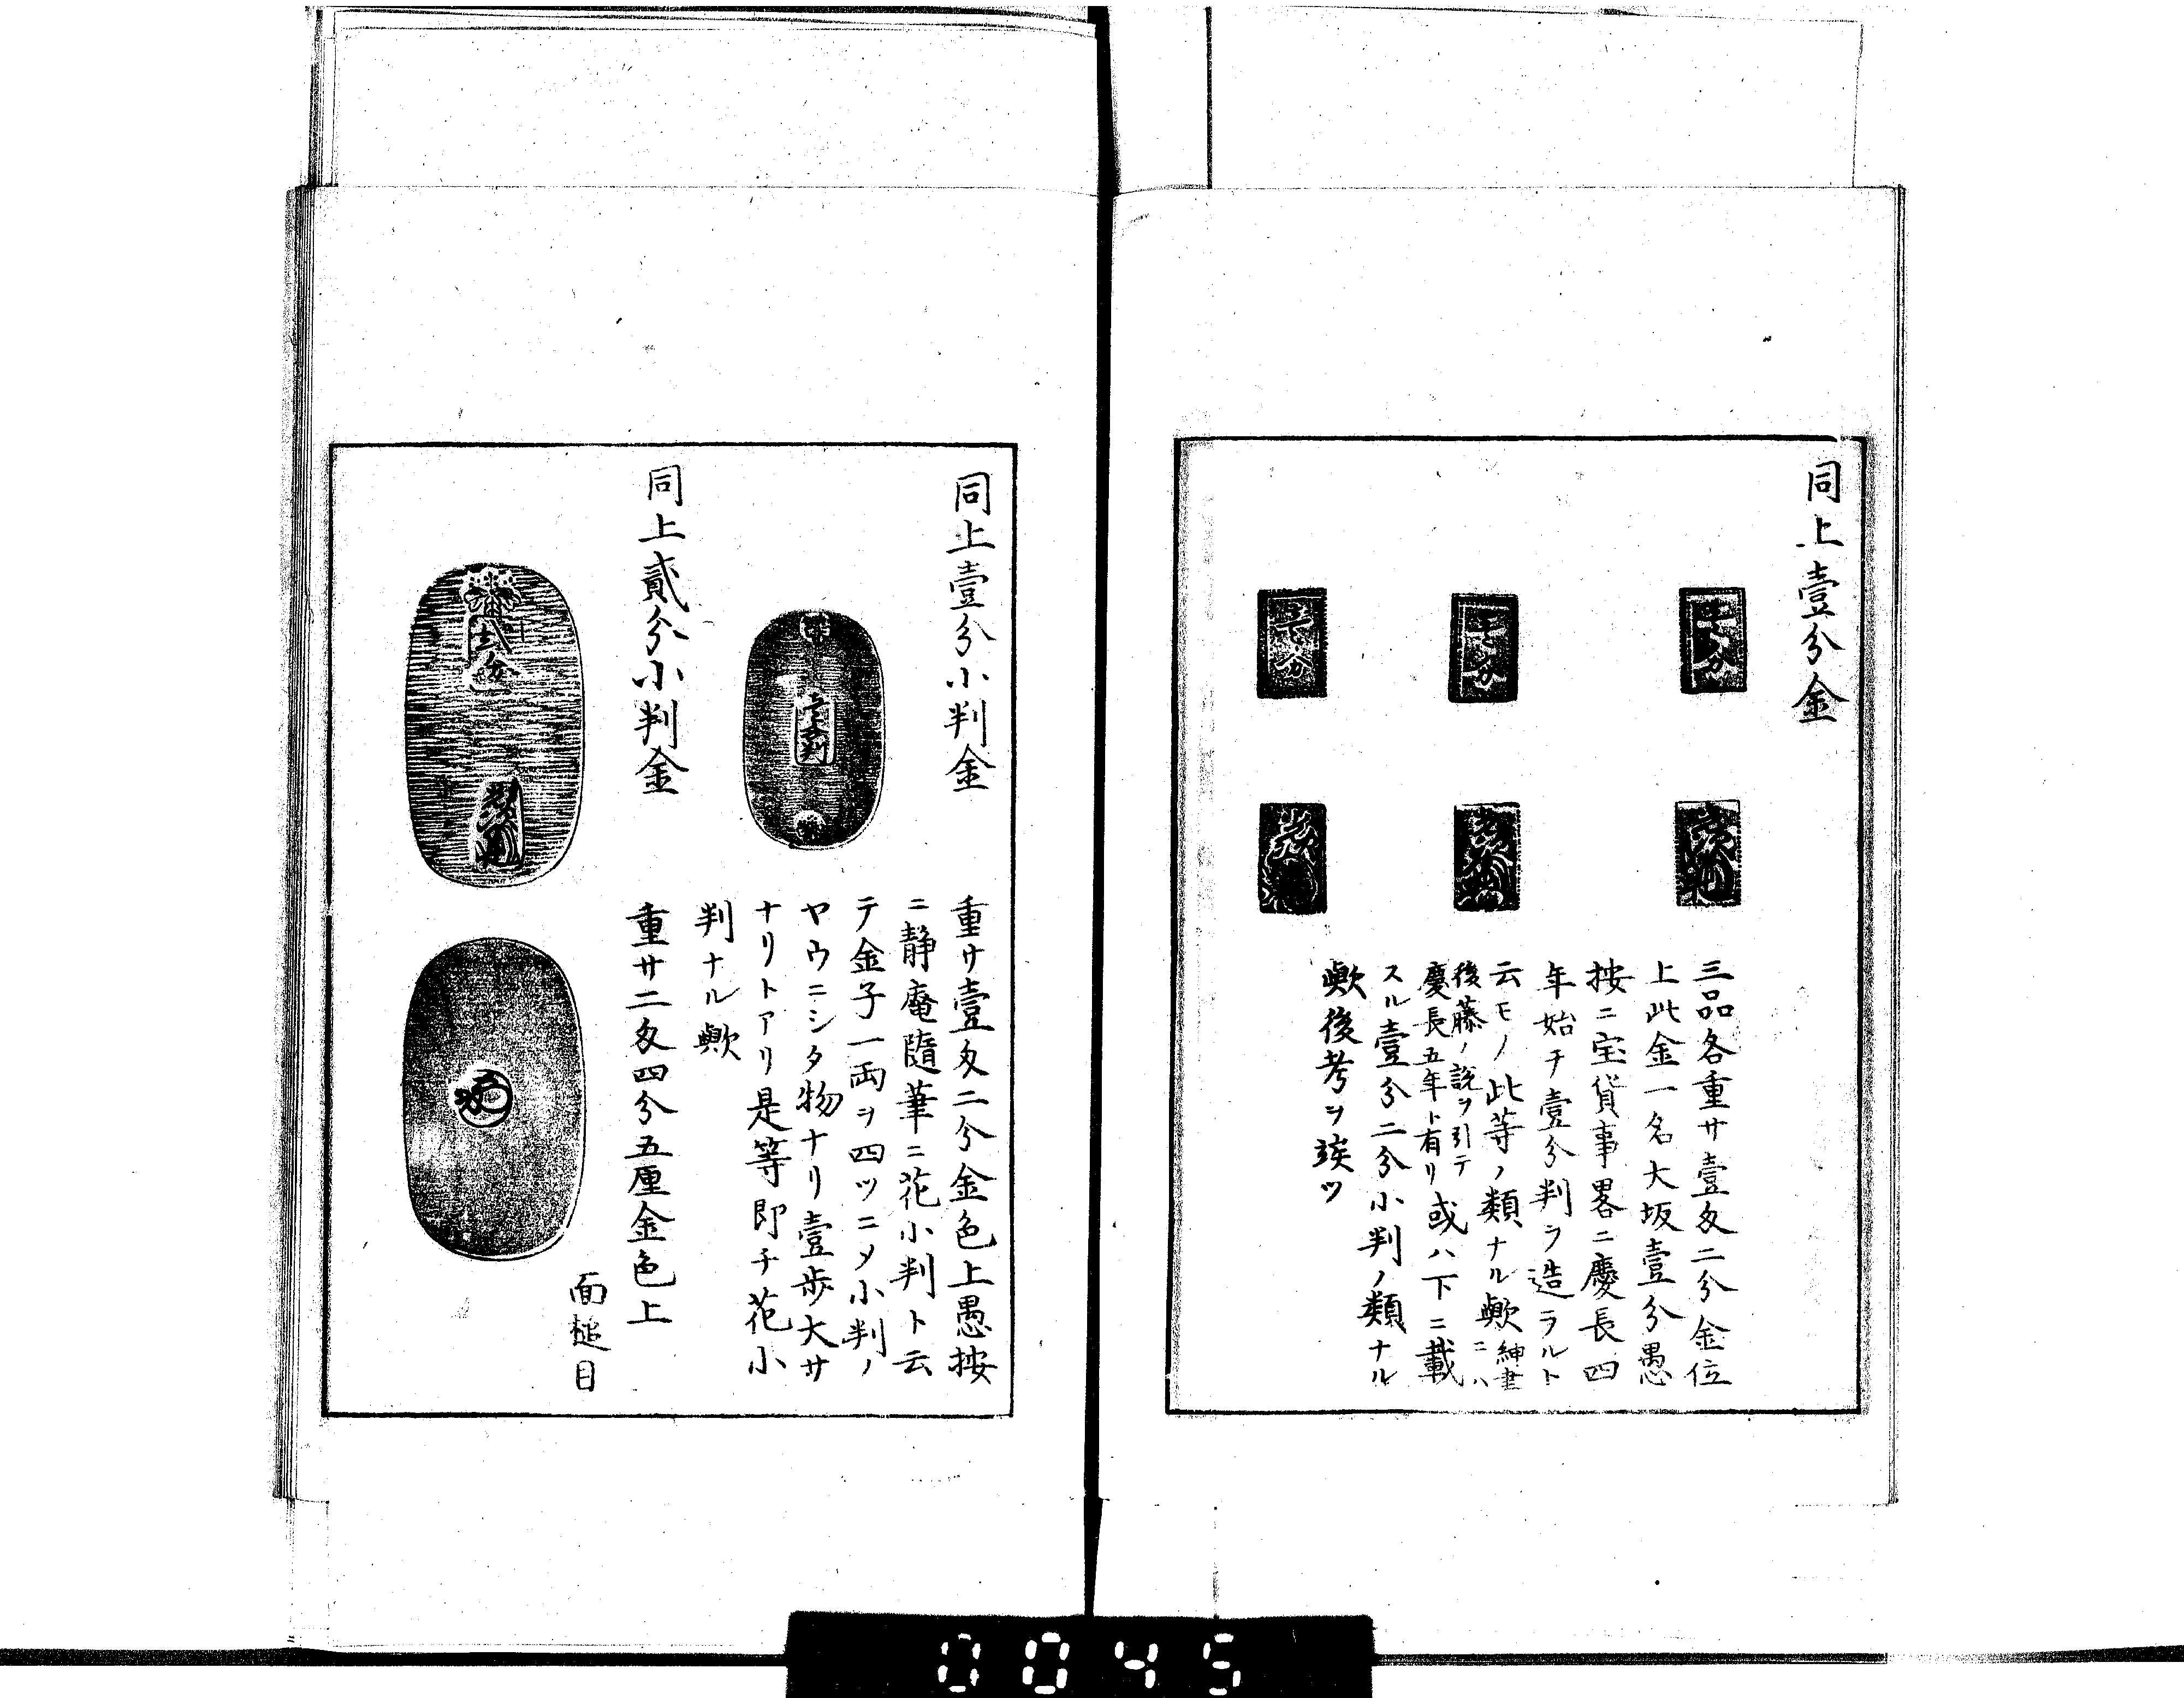 同上壹分金
壹分
壹分
壹分
光次
光次
三品各重サ壹匁二分金位
上此金一名大坂壹分愚
按ニ宝貨事畧ニ慶長四
年始テ壹分判ヲ造ラルト
云モノ此等ノ類ナル歟紳書ニハ
後藤ノ説ヲ引テ
慶長五年ト有リ或ハ下ニ載
スル壹分二分小判ノ類ナル
歟後考ヲ竢ツ
同上壹分小判金
重サ壹匁二分金色上愚按
ニ静庵隨筆ニ花小判ト云
テ金子一両ヲ四ツニメ小判ノ
ヤウニシタ物ナリ壹歩大サ
ナリトアリ是等即チ花小
判ナル歟
同上貳分小判金
重サ二匁四分五厘金色上
面鎚目
0045